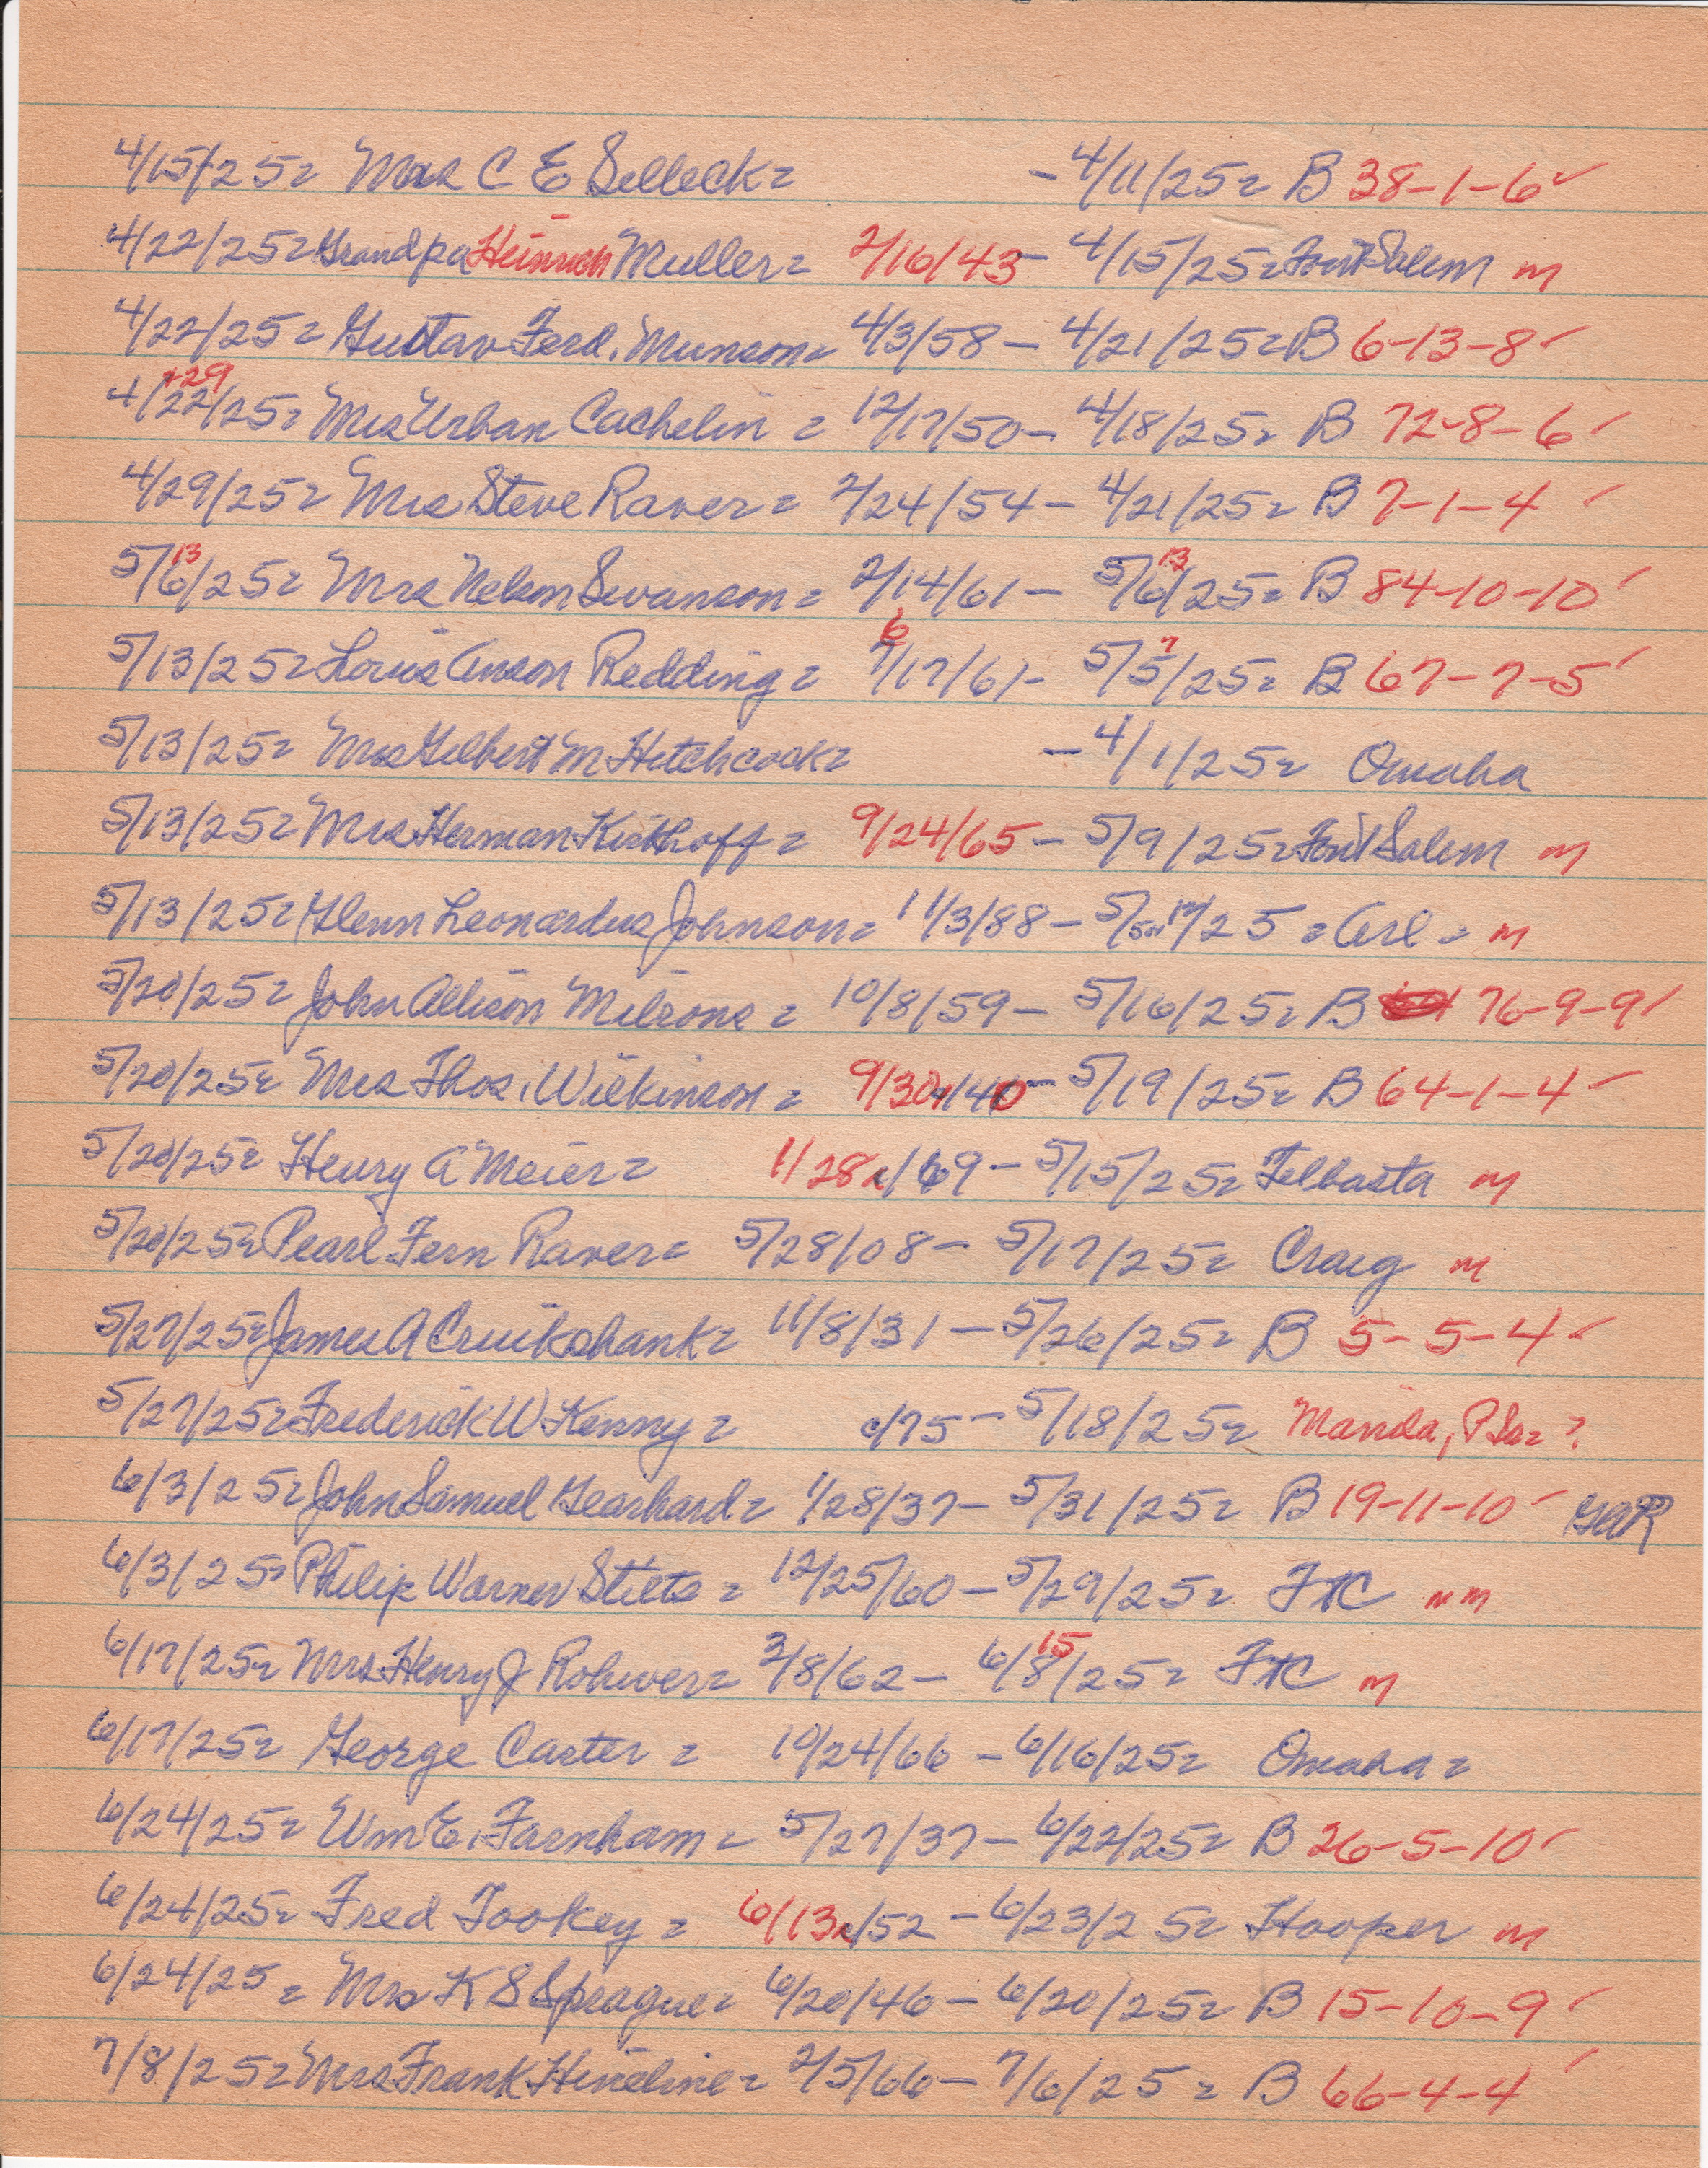 4/15/25= Mrs C E Selleck= - 4/11/25= B 38-1-6✓
4/22/25= Grandpa Heinrich Muller= 2/16/43 - 4/15/25= Font Salem m
4/22/25= Gustav Ferd. Munson= 4/3/58 - 4/21/25= B 6-13-8✓
4/22+29/25= Mrs Urban Cachelin = 12/17/50 - 4/18/25= B 72-8-6✓
4/29/25= Mrs Steve Raver= 2/24/54 - 4/21/25= B 7-1-4 ✓
5/6 13/25= Mrs Nelson Swanson= 2/14/61 - 5/6 13/25= B 84-10-10✓
5/13/25= Louis Anson Redding= 6/17/61 - 5/5 7/25= B 67-7-5✓
5/13/25= Mrs Gilbert M Hitchcock= - 4/1/25= Omaha
5/13/25= Mrs Herman Kirkhoff= 9/24/65 - 5/9/25= Font Salem m
5/13/25= Glenn Leonardus Johnson= 11/3/88 - 5/ /25= Arl= m
5/20/25= John Allison Milrone= 10/8/59 - 5/16/25= B 76-9-9✓
5/20/25= Mrs Thos. Wilkinson= 9/30/40 - 5/19/25= B 64-1-4✓
5/20/25= Henry A Meier= 11/28/69 - 5/15/25= Telbasta m
5/20/25= Pearl Fern Raver= 5/28/08 - 5/17/25= Craig m
5/27/25= James A Cruikshank= 11/8/31 - 5/26/25= B 5-5-4✓
5/27/25= Frederick W Kenny= c/75 - 5/18/25=
6/3/25= John Samuel Gearhard= 1/28/37 - 5/31/25= B 19-11-10✓ GAR
6/3/25= Philip Warner Stilts= 12/25/60 - 5/29/25= FTC nm
6/17/25= Mrs Henry J Rohwer= 3/8/62 - 6/8 15/25= FTC m
6/17/25= George Carter= 10/24/66 - 6/16/25= Omaha=
6/24/25= Wm E. Farnham= 5/27/37 - 6/22/25= B 26-5-10✓
6/24/25= Fred Tookey= 6/13/52 - 6/23/25= Hooper m
6/24/25= Mrs K S Sprague= 6/20/46 - 6/20/25= B 15-10-9✓
7/8/25= Mrs Frank Hineline= 2/5/66 - 7/6/25= B 66-4-4✓